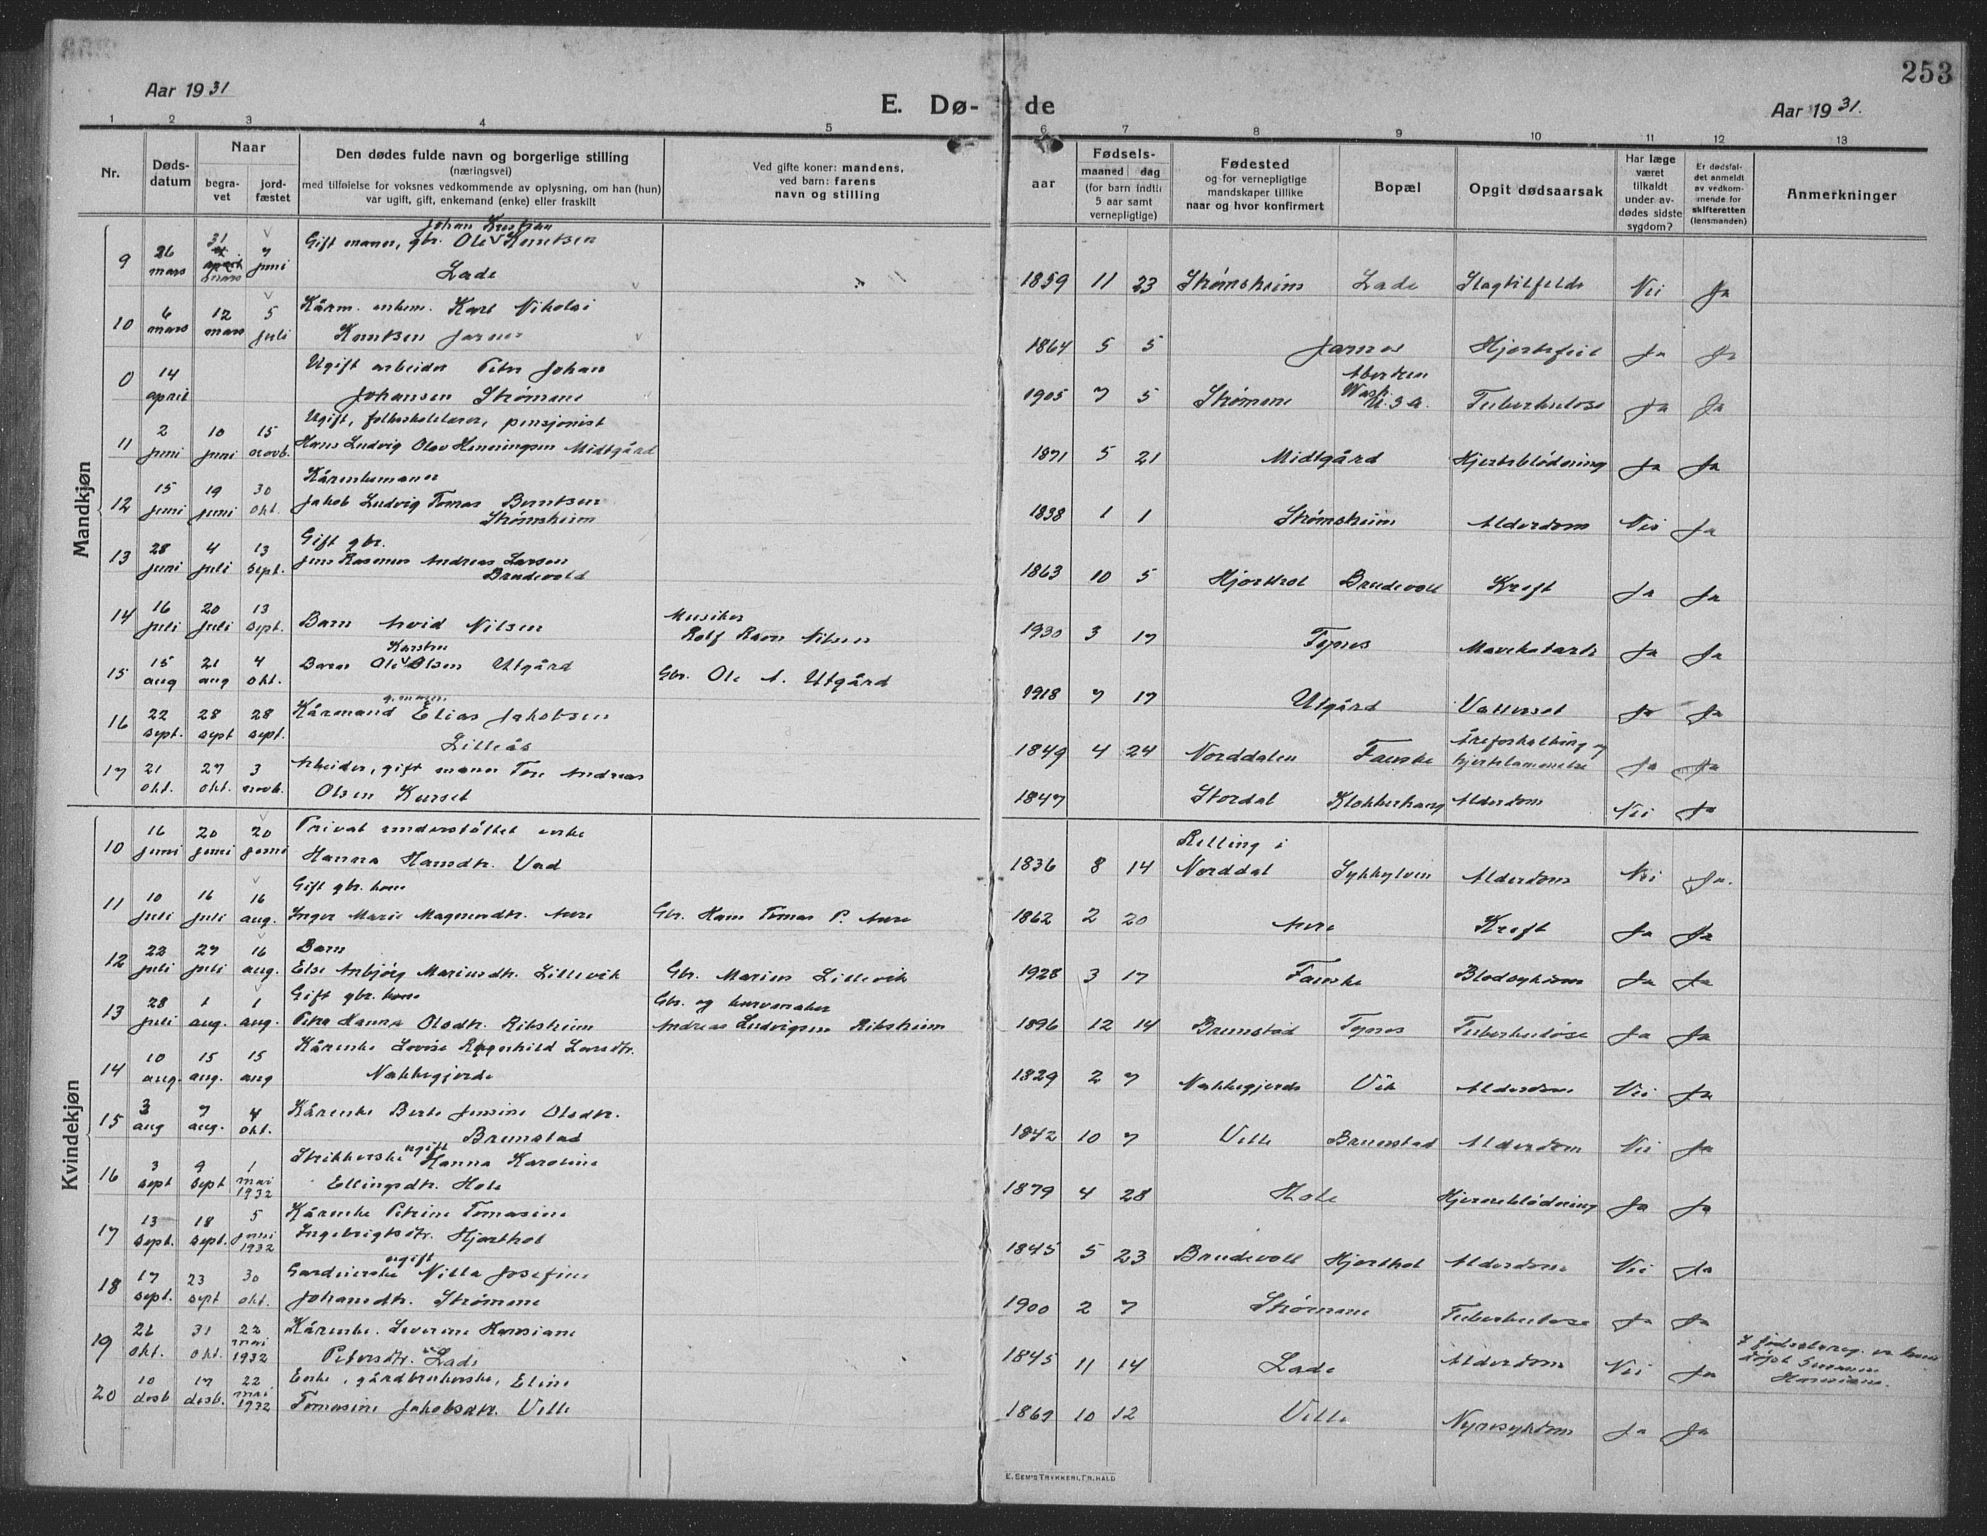 253
Aar 1931
E. Dø-de
Aar 1931.
1 2 3 4 5 6 7 8 9 10 11 12 13
Nr.
Døds-
datum
Naar
begra-
vet
jord-
fæstet
Den dødes fulde navn og borgerlige stilling
(næringsvei)
med tilføielse for voksnes vedkommende av oplysning, om han (hun)
var ugift, gift, enkemand (enke) eller fraskilt
Ved gifte koner: mandens,
ved barn: farens
navn og stilling
aar
Fødsels-
maaned dag
(for barn indtil
5 aar samt
vernepligtige)
Fødested
og for vernepligtige
mandskaper tillike
naar og hvor konfirmert
Bopæl
Opgit dødsaarsak
Har læge
været
tilkaldt
under av-
dødes sidste
sygdom?
Er dødsfal-
det anmeldt
av vedkom-
mende for
skifteretten
(lensmanden)
Anmerkninger
Mandkjøn
Johan Kristian
9 26 mars 31 mars 7 juni Gift mann, gbr. Ole Knutsen
Lade 1859 11 23 Strømsheim Lade Slagtilfelde Nei Ja
10 6 mars 12 mars 5 juli Kårm. enkem. Karl Nikolai
Knutsen Jarnes 1864 5 5 Jarnes Hjertefeil Ja Ja
0 14 april Ugift arbeider Peter Johan
Johansen Strømme 1905 7 5 Strømme Aberdeen Wash. U.S.A. Tuberkulose Ja Ja
11 2 juni 10 juni 15 novb. Ugift, folkeskolelærer, pensjonist
Hans Ludvig Olav Henningsen Midtgård 1871 5 21 Midtgård Hjerteblødning Ja Ja
12 15 juni 19 juni 30 okt. Kårenkemann
Jakob Ludvig Tomas Berntsen
Strømsheim 1838 1 1 Strømsheim Alderdom Nei Ja
13 28 juni 4 juli 13 sept. Gift gbr.
Jens Rasmus Andreas Larsen
Brudevold 1863 10 5 Hjorthol Brudevoll Kreft Ja Ja
14 16 juli 20 juli 13 sept. Barn Arvid Nilsen Musiker
Rolf Ravn Nilsen 1930 3 17 Tynes Mavekatarh Ja Ja
Karsten
15 15 aug 21 aug 4 okt. Barn Ole Olsen Utgård Gbr. Ole A. Utgård 1918 7 17 Utgård Vattersot Ja Ja
g. mann.
16 22 sept. 28 sept 28 sept. Kårmand Elias Jakobsen
Lilleås 1849 4 24 Norddalen Fauske Åreforkalkning og
hjertelammelse Ja Ja
17 21 okt. 27 okt. 3 novb. Arbeider, gift mann Tore Andreas
Olsen Kurset 1847 Stordal Klokkerhaug Alderdom Nei Ja
Kvindekjøn
10 16 juni 20 juni 20 juni Privat understøttet enke
Hanna Hansdtr. Vad 1836 8 14 Relling i
Norddal Sykkylven Alderdom Nei Ja.
11 10 juli 16 juli 16 aug. Gift gbr. kone
Inger Marie Magnusdtr. Aure Gbr. Hans Tomas P. Aure 1862 2 20 Aure Kreft Ja Ja
12 22 juli 27 juli 16 aug. Barn
Else Anbjørg Mariusdtr. Lillevik Gbr. Marius Lillevik 1928 3 17 Fauske Blodsykdom Ja Ja
13 28 juli 1 aug. 1 aug. Gift gbr. kone Gbr. og kurvmaker
Petra Hanna Olsdtr. Riksheim Andreas Ludvigsen Riksheim 1896 12 14 Brunstad Tynes Tuberkuløse Ja Ja
14 10 aug. 15 aug. 15 aug Kårenke Lovise Ragnhild Larsdtr.
Nakkegjerde 1829 2 7 Nakkegjerde Vik Alderdom Nei Ja
15 3 aug 7 aug. 4 okt. Kårenke Berte Jensine Olsdtr.
Brunstad 1842 10 7 Velle Brunstad Alderdom Nei Ja
ugift
16 3 sept 9 sept 1 mai 1932 Strikkerske Hanna Karoline
Ellingsdtr. Hole 1879 4 28 Hole Hjerneblødning Ja Ja
17 13 sept. 18 sept. 5 juni 1932 Kårenke Petrine Tomasine
Ingebrigtsdtr. Hjorthol 1845 5 23 Brudevoll Hjorthol Alderdom Nei Ja
ugift
18 17 sept. 23 sept 30 okt. Gardeierske Nilla Josefine
Johansdtr. Strømme 1900 2 7 Strømme Tuberkulose Ja Ja
19 26 okt. 31 okt. 22 mai 1932 Kårenke. Severine Hansiane
Petersdtr. Lade 1845 11 14 Lade Alderdom Nei Ja I fødselsreg. er hun
døpt
Hansiane.
20 10 desb 17 desb. 22 mai 1932 Enke, gårdbrukerske, Eline
Tomasine Jakobsdtr. Velle 1869 10 12 Velle Nyresykdom Ja Ja
E. SEM'S TRYKKERI, FR. HALD